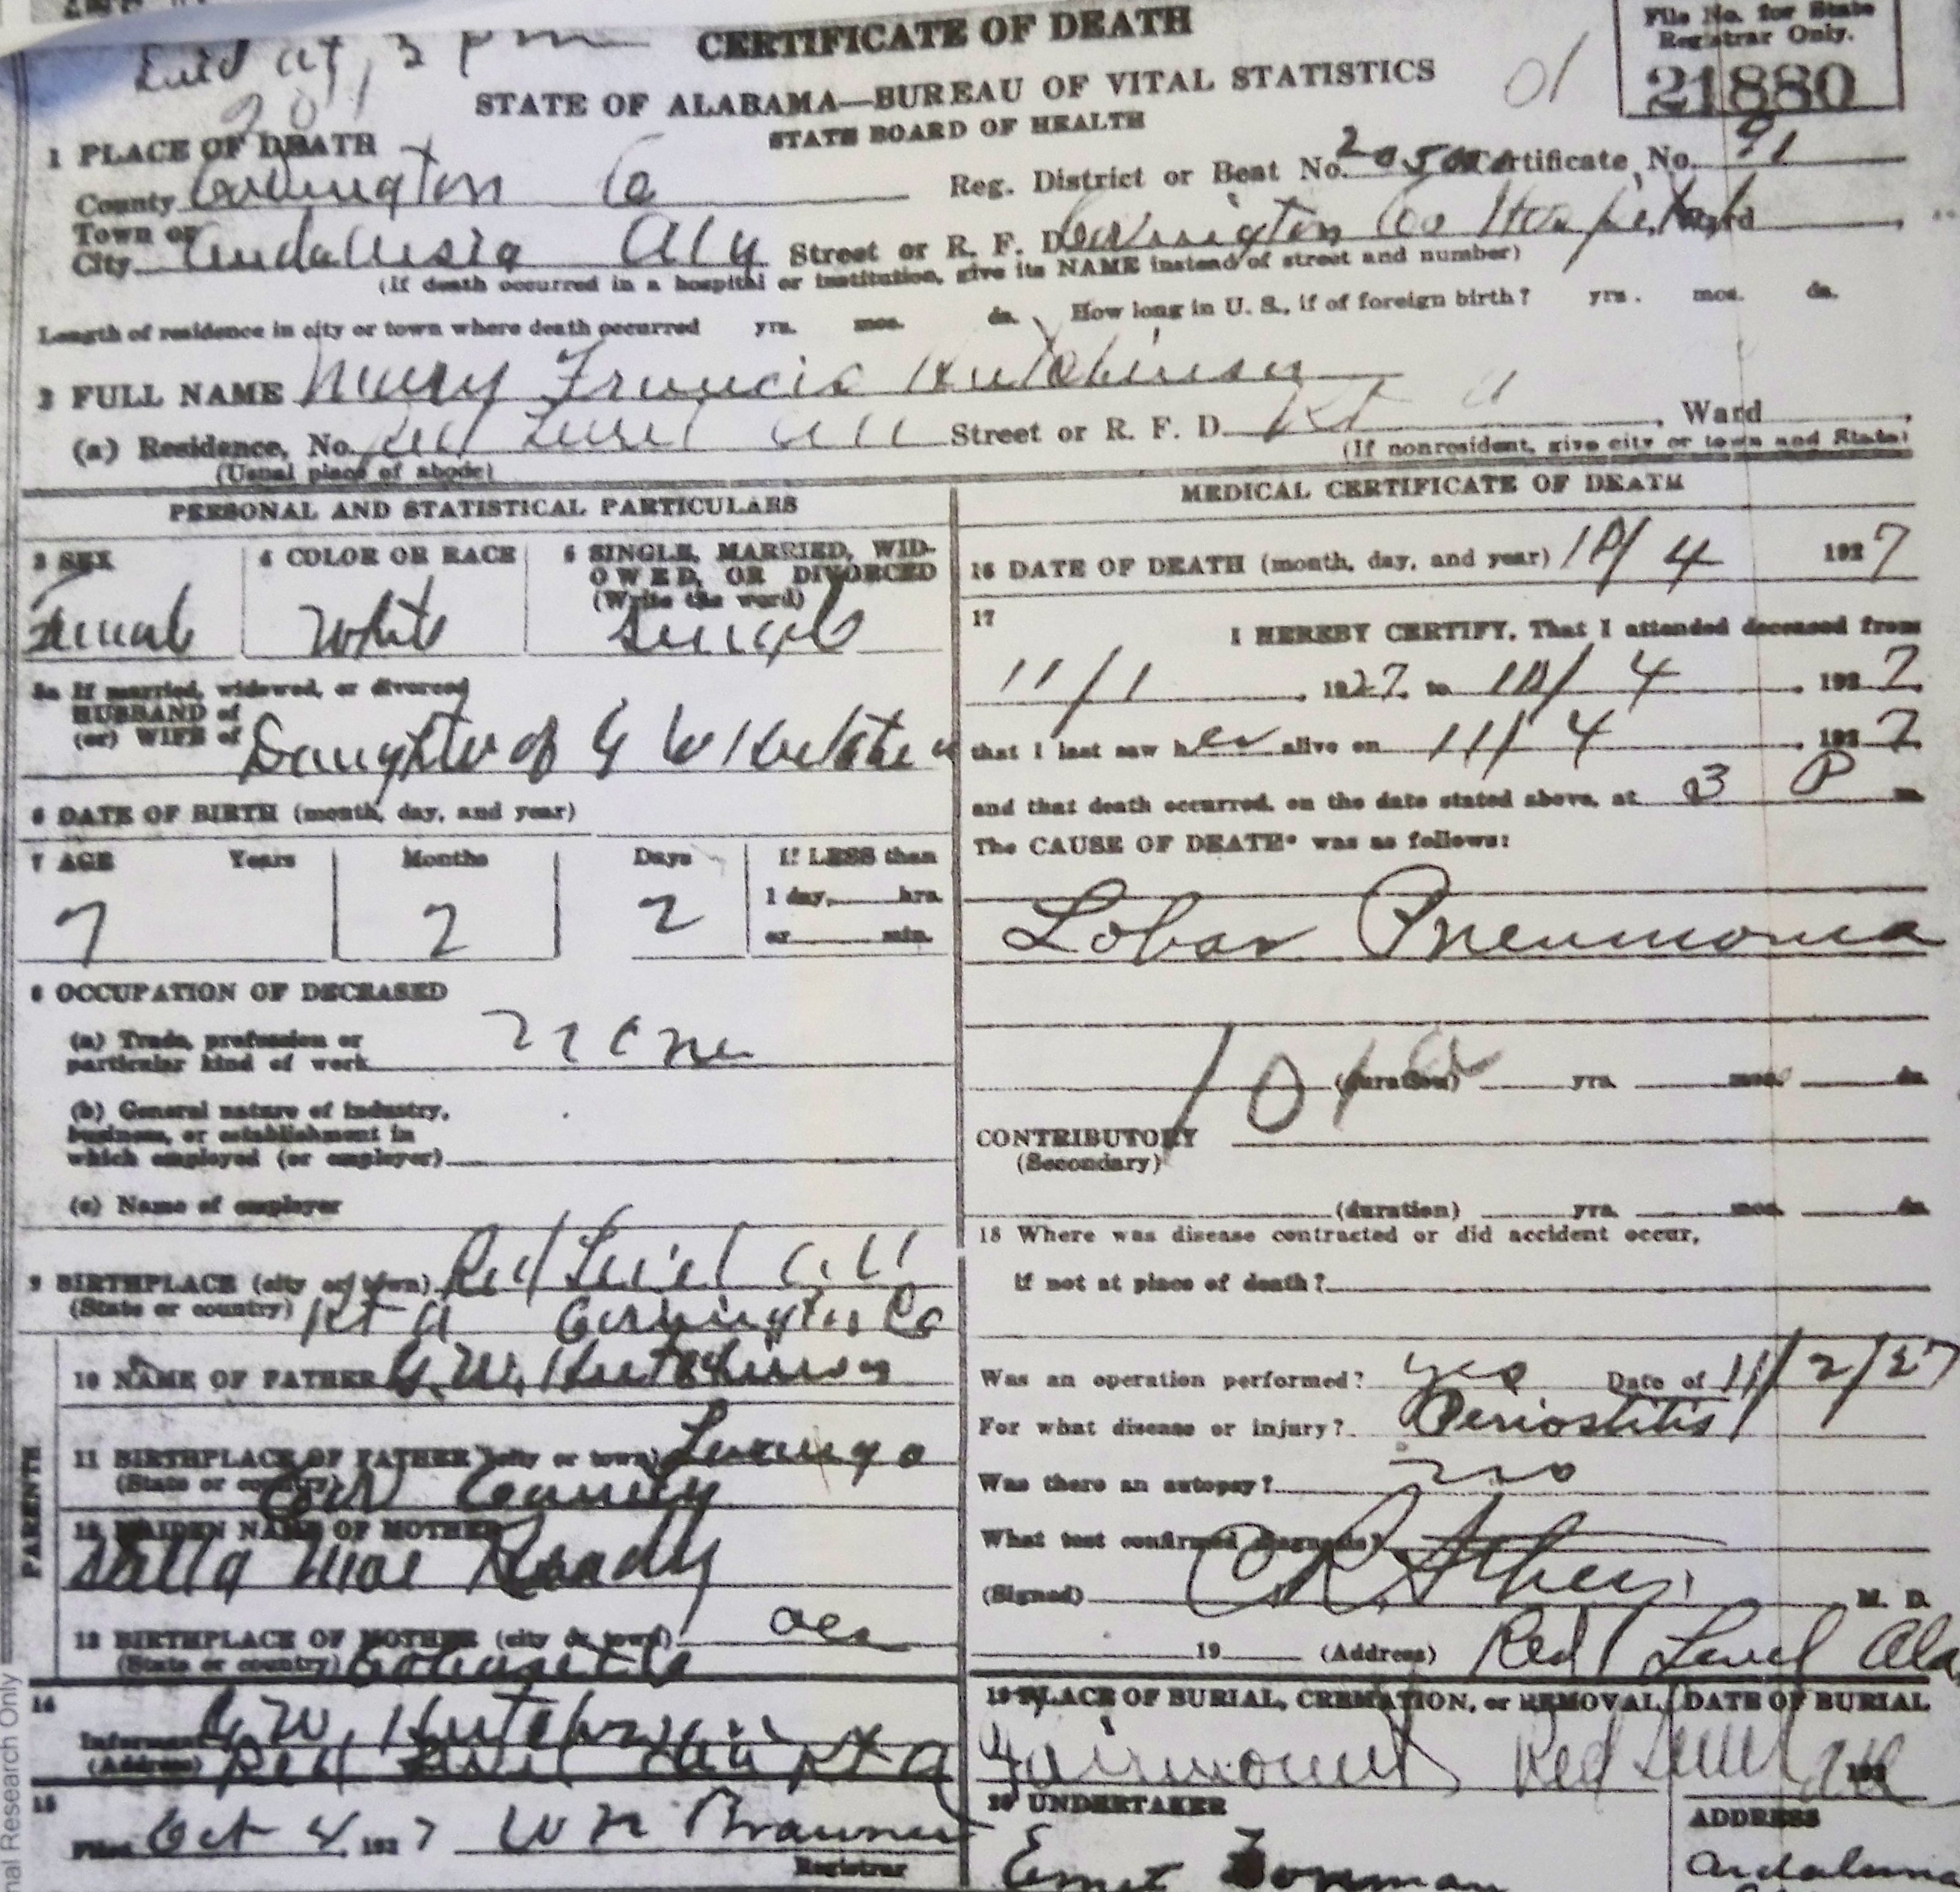 Died at 3 pm
CERTIFICATE OF DEATH
File No. for State
Registrar Only.
21880
STATE OF ALABAMA—BUREAU OF VITAL STATISTICS
STATE BOARD OF HEALTH
1 PLACE OF DEATH
County Covington Co Reg. District or Beat No. Certificate No. 91
Town or
City Andalusia Ala Street or R. F. D. Covington Co Hospital Ward
(If death occurred in a hospital or institution, give its NAME instead of street and number)
Length of residence in city or town where death occurred yrs. mos. ds. How long in U. S., if of foreign birth? yrs. mos. ds.
2 FULL NAME Mary Francis Hutchinson
(a) Residence, No. Red Level Ala Street or R. F. D. Rt A, Ward
(Usual place of abode) (If nonresident, give city or town and State)
PERSONAL AND STATISTICAL PARTICULARS
3 SEX 4 COLOR OR RACE 5 SINGLE, MARRIED, WID-
OWED, OR DIVORCED
(Write the word)
Female White Single
5a If married, widowed, or divorced
HUSBAND of
(or) WIFE of Daughter of G W
6 DATE OF BIRTH (month, day, and year)
7 AGE Years Months Days If LESS than
1 day, hrs.
or min.
7 2 2
8 OCCUPATION OF DECEASED
(a) Trade, profession or
particular kind of work none
(b) General nature of industry,
business, or establishment in
which employed (or employer)
(c) Name of employer
9 BIRTHPLACE (city or town) Red Level Ala
(State or country) Rt A Covington Co
PARENTS
10 NAME OF FATHER G. W. Hutchinson
11 BIRTHPLACE OF FATHER (city or town) Loango
(State or country) Cov County
12 MAIDEN NAME OF MOTHER
Mae
13 BIRTHPLACE OF MOTHER (city or town)
(State or country)
14
Informant G. W. Hutchinson
(Address) Red Level Ala Rt A
15
Filed Oct 4, 1927 W
Registrar
MEDICAL CERTIFICATE OF DEATH
16 DATE OF DEATH (month, day, and year) 4 1927
17
I HEREBY CERTIFY, That I attended deceased from
11/1, 1927, to 4, 1927,
that I last saw her alive on 11/4, 1927,
and that death occurred, on the date stated above, at 3 P m.
The CAUSE OF DEATH* was as follows:
Lobar Pneumonia
(duration) yrs. mos. ds.
CONTRIBUTORY
(Secondary)
(duration) yrs. mos. ds.
18 Where was disease contracted or did accident occur,
if not at place of death?
Was an operation performed? yes Date of 11/2/27
For what disease or injury? Periostitis
Was there an autopsy? no
What test confirmed diagnosis?
(Signed) M. D.
19 (Address) Red Level Ala
19 PLACE OF BURIAL, CREMATION, or REMOVAL DATE OF BURIAL
Fairmount Red Level Ala 192
20 UNDERTAKER ADDRESS
Foreman Andalusia